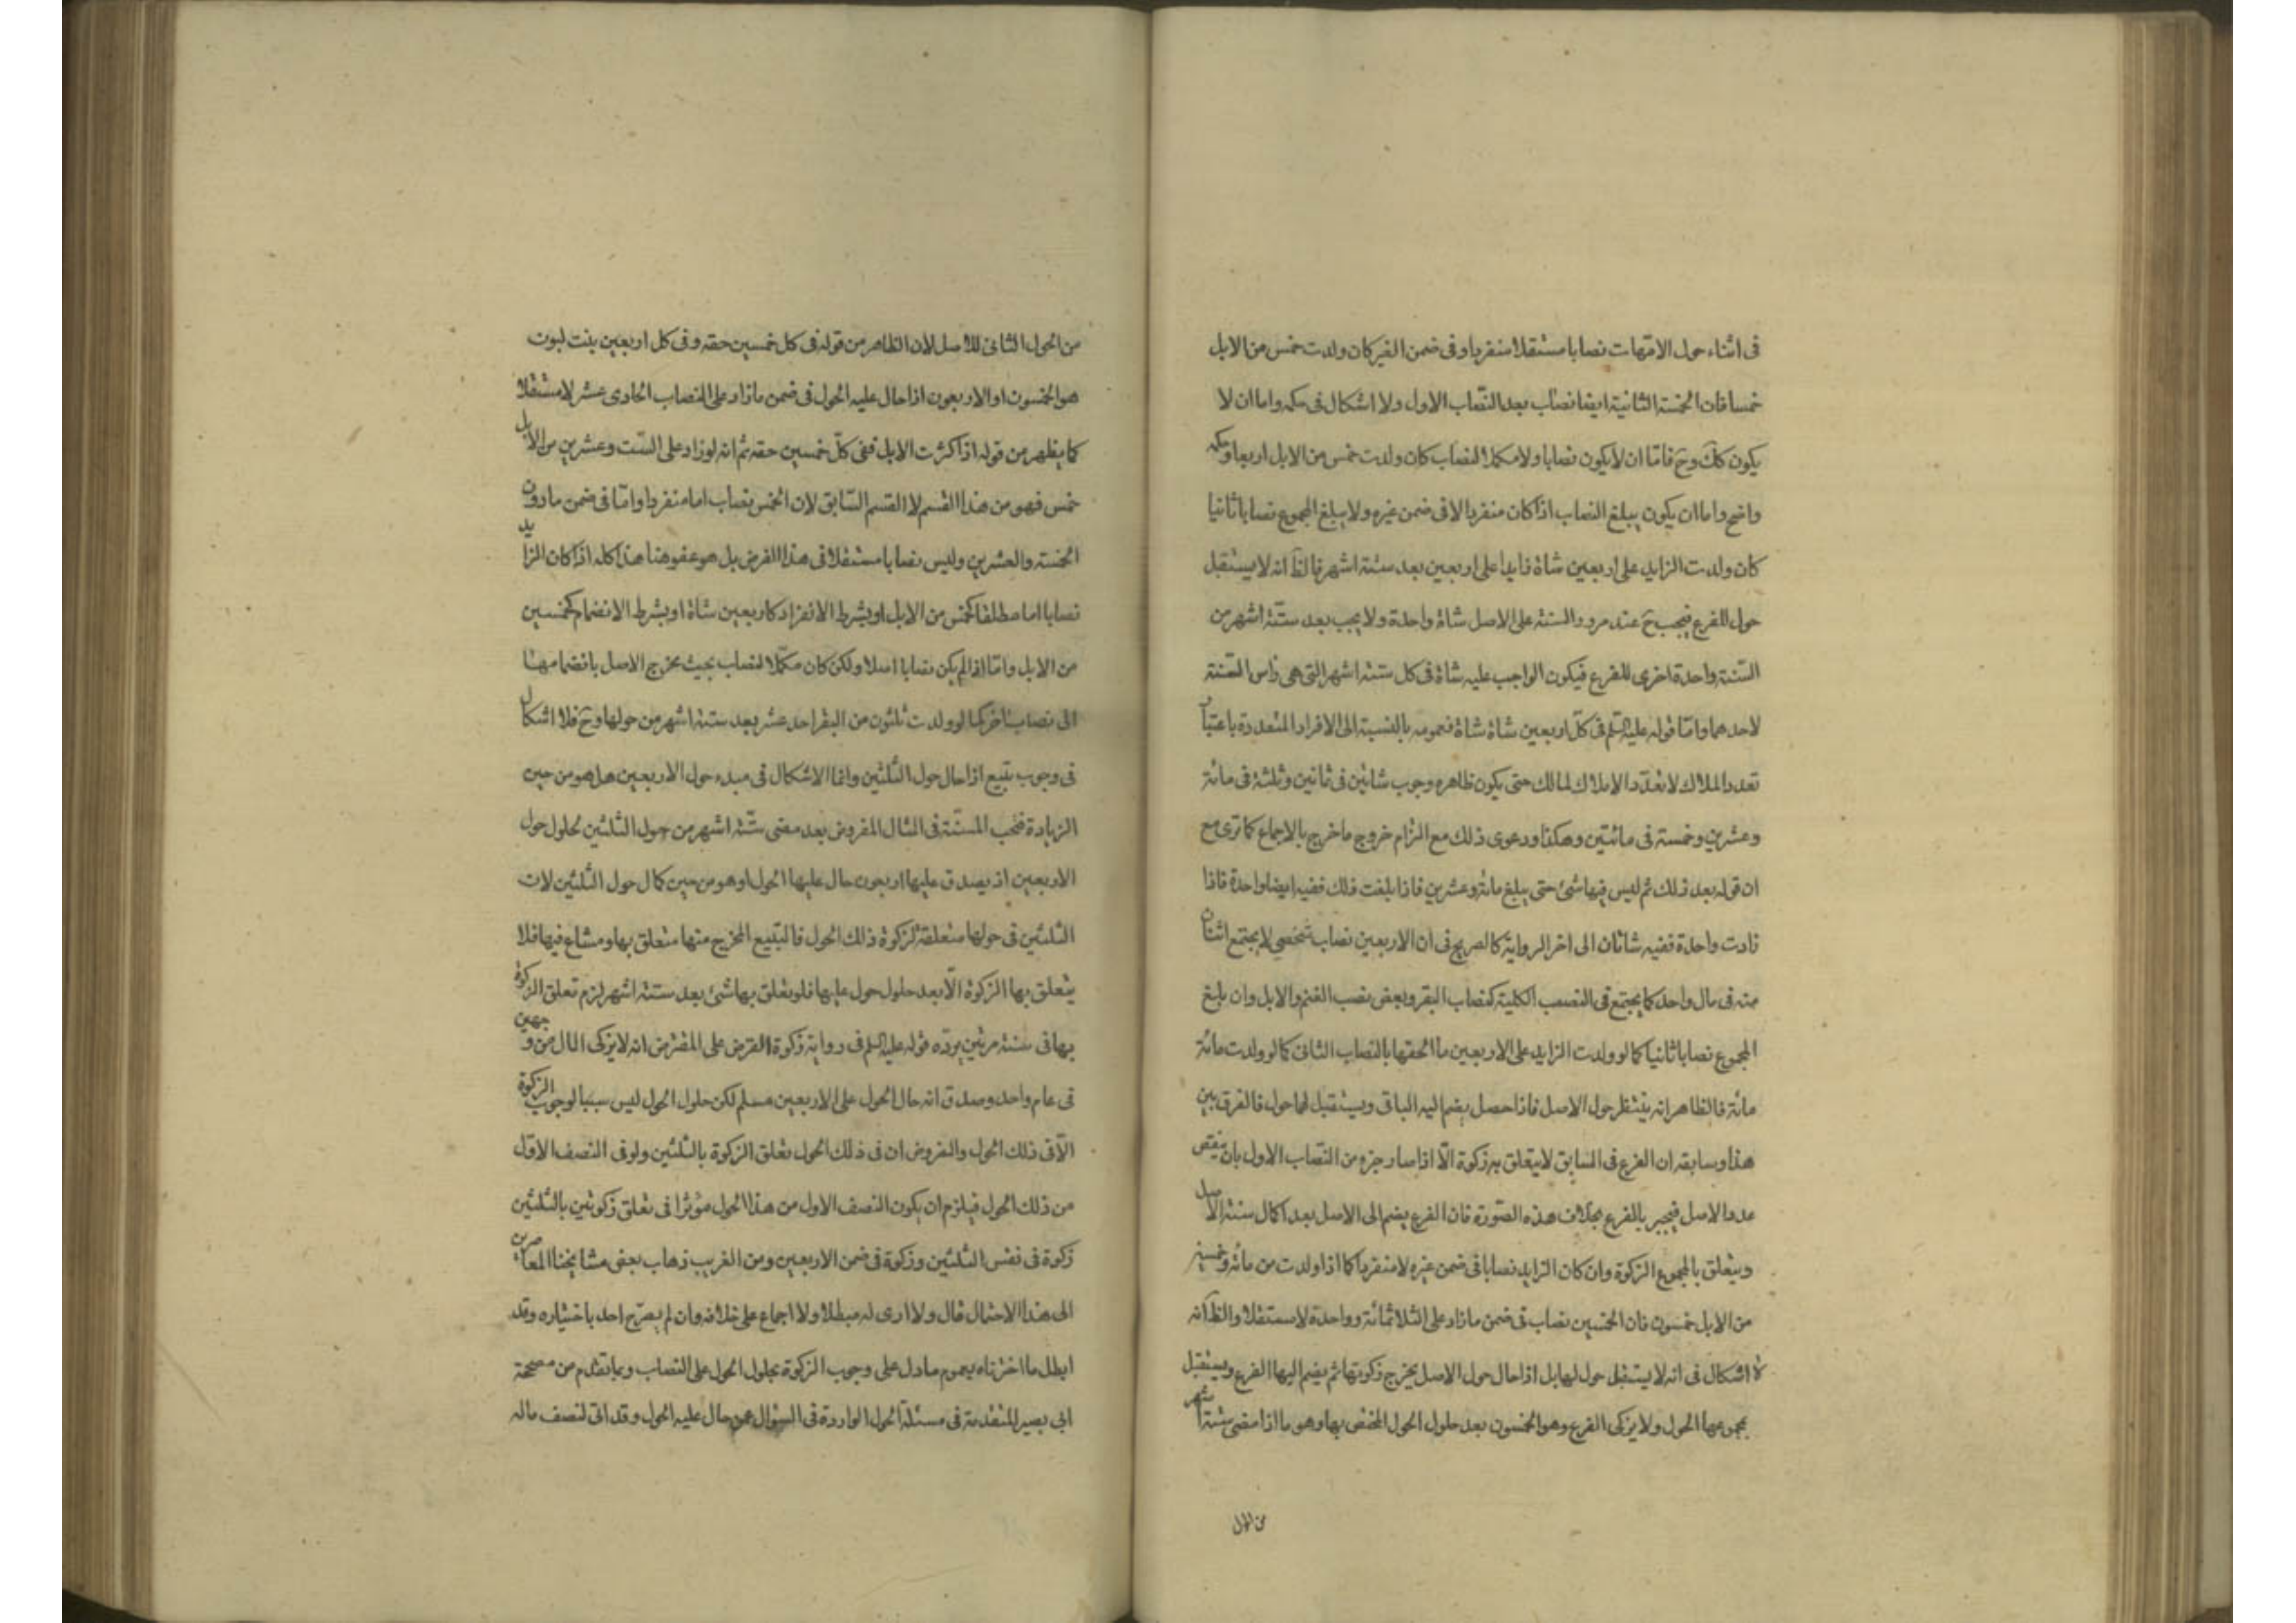 فى اثناء حول الامّهات نصابا مستقلا منفردا وفى ضمن الغير كان ولدت خمس من الابل
خمسا فان الخمسة الثانية ايضا نصاب بعد النّصاب الاول ولا اشكال فى حكمه واما ان لا
يكون كك وح فامّا ان لا يكون نصابا ولا مكملا لنصاب كان ولدت خمس من الابل اربعا وحكمه
واضح واما ان يكون يبلغ النصاب اذا كان منفردا لا فى ضمن غيره ولا يبلغ المجموع نصابا ثانيا
كان ولدت الزايد على اربعين شاة زايدا على اربعين بعد ستة اشهر فالظ انه لا يستقبل
حول للفرع فيجب ح عند مرور السنة على الاصل شاة واحدة ولا يجب بعد ستّة اشهر من
السّنة واحدة اخرى للفرع فيكون الواجب عليه شاة فى كل ستة اشهر التى هى راس السّنة
لاحدهما وامّا قوله عليه السّلم فى كلّ اربعين شاة شاة فعمومه بالنسبة الى الافراد المتعددة باعتبار
تعدد الملاك لا تعدّد الاملاك لمالك حتى يكون ظاهره وجوب شاتين فى ثمانين وثلثة فى مائة
وعشرين وخمسة فى مائتين وهكذا ودعوى ذلك مع التزام خروج ما خرج بالاجماع كما ترى مع
ان قوله بعد ذلك ثم ليس فيها شئ حتى يبلغ مائة وعشرين فاذا بلغت ذلك ففيه ايضا واحدة فاذا
زادت واحدة ففيه شاتان الى اخر الرواية كالصريح فى ان الاربعين نصاب شخصى لا يجتمع اثنان
منه فى مال واحد كما يجتمع فى النصب الكلية كنصاب البقر وبعض نصب الغنم والابل وان بلغ
المجموع نصابا ثانيا كما لو ولدت الزايد على الاربعين ما الحقها بالنصاب الثانى كما لو ولدت مائة
مائة فالظاهر انه ينتظر حول الاصل فاذا حصل يضم اليه الباقى ويستقبل لهما حول فالفرق بين
هذا وسابقه ان الفرع فى السابق لا يتعلق به زكوة الّا اذا صار جزء من النّصاب الاول بان ينقص
عدد الاصل فيجبر بالفرع بخلاف هذه الصّورة فان الفرع يضم الى الاصل بعد اكمال سنة الاصل
ويتعلق بالمجموع الزكوة وان كان الزايد نصابا فى ضمن غيره لا منفردا كما اذا ولدت من مائة وخمسين
من الابل خمسون فان الخمسين نصاب فى ضمن ما زاد على الثلاثمائة وواحدة لا مستقلا والظ انه
لا اشكال فى انه لا يستقبل حول لها بل اذا حال حول الاصل يخرج زكوتها ثم يضم اليها الفرع ويستقبل
بمجموعها الحول ولا يزكى الفرع وهو الخمسون بعد حلول الحول المختص بها وهو ما اذا مضى ستة اشهر
من الحول
من الحول الثانى للاصل لان الظاهر من قوله فى كل خمسين حقه وفى كل اربعين بنت لبون
هو الخمسون او الاربعون اذا حال عليه الحول فى ضمن ما زاد على النصاب الحادى عشر لا مستقلا
كما يظهر من قوله اذا كثرت الابل ففى كلّ خمسين حقه ثم انه لو زاد على السّت وعشرين من الابل
خمس فهو من هذا القسم لا القسم السّابق لان الخمس نصاب اما منفردا وامّا فى ضمن ما دون
الخمسة والعشرين وليس نصابا مستقلا فى هذا الفرض بل هو عفو هنا هذا كله اذا كان الزايد
نصابا اما مطلقا كخمس من الابل او بشرط الانفراد كاربعين شاة او بشرط الانضمام كخمسين
من الابل وامّا اذا لم يكن نصابا اصلا ولكن كان مكمّلا لنصاب بحيث يخرج الاصل بانضمامهما
الى نصاب اخر كما لو ولدت ثلثون من البقر احد عشر بعد ستة اشهر من حولها وح فلا اشكال
فى وجوب تبيع اذا حال حول الثلثين وانما الاشكال فى مبدء حول الاربعين هل هو من حين
الزيادة فتجب المسنّة فى المثال المفروض بعد مضى ستّة اشهر من حول الثلثين لحلول حول
الاربعين اذ يصدق عليها اربعون حال عليها الحول او هو من حين كمال حول الثلثين لان
الثلثين فى حولها متعلقة لزكوة ذلك الحول فالتبيع المخرج منها متعلق بها ومشاع فيها فلا
يتعلق بها الزكوة الّا بعد حلول حول عليها فلو تعلق بها شئ بعد ستة اشهر لزم تعلق الزكوة
بها فى سنة مرتين يردّه قوله عليه السلم فى رواية زكوة القرض على المقترض انه لا يزكى المال من وجهين
فى عام واحد وصدق انه حال الحول على الاربعين مسلم لكن حلول الحول ليس سببا لوجوب الزكوة
الّا فى ذلك الحول والمفروض ان فى ذلك الحول تعلق الزكوة بالثلثين ولو فى النصف الاوّل
من ذلك الحول فيلزم ان يكون النصف الاول من هذا الحول مؤثرا فى تعلق زكوتين بالثلثين
زكوة فى نفس الثلثين وزكوة فى ضمن الاربعين ومن الغريب ذهاب بعض مشايخنا المعاصرين
الى هذا الاحتمال قال ولا ارى له مبطلا ولا اجماع على خلافه وان لم يصرّح احد باختياره وقد
ابطل ما اخترناه بعموم ما دل على وجوب الزكوة بحلول الحول على النصاب وبما تقدم من مصححة
ابى بصير المتقدمة فى مسئلة الحول الواردة فى السؤال عمن حال عليه الحول وقد اتى لنصف ماله